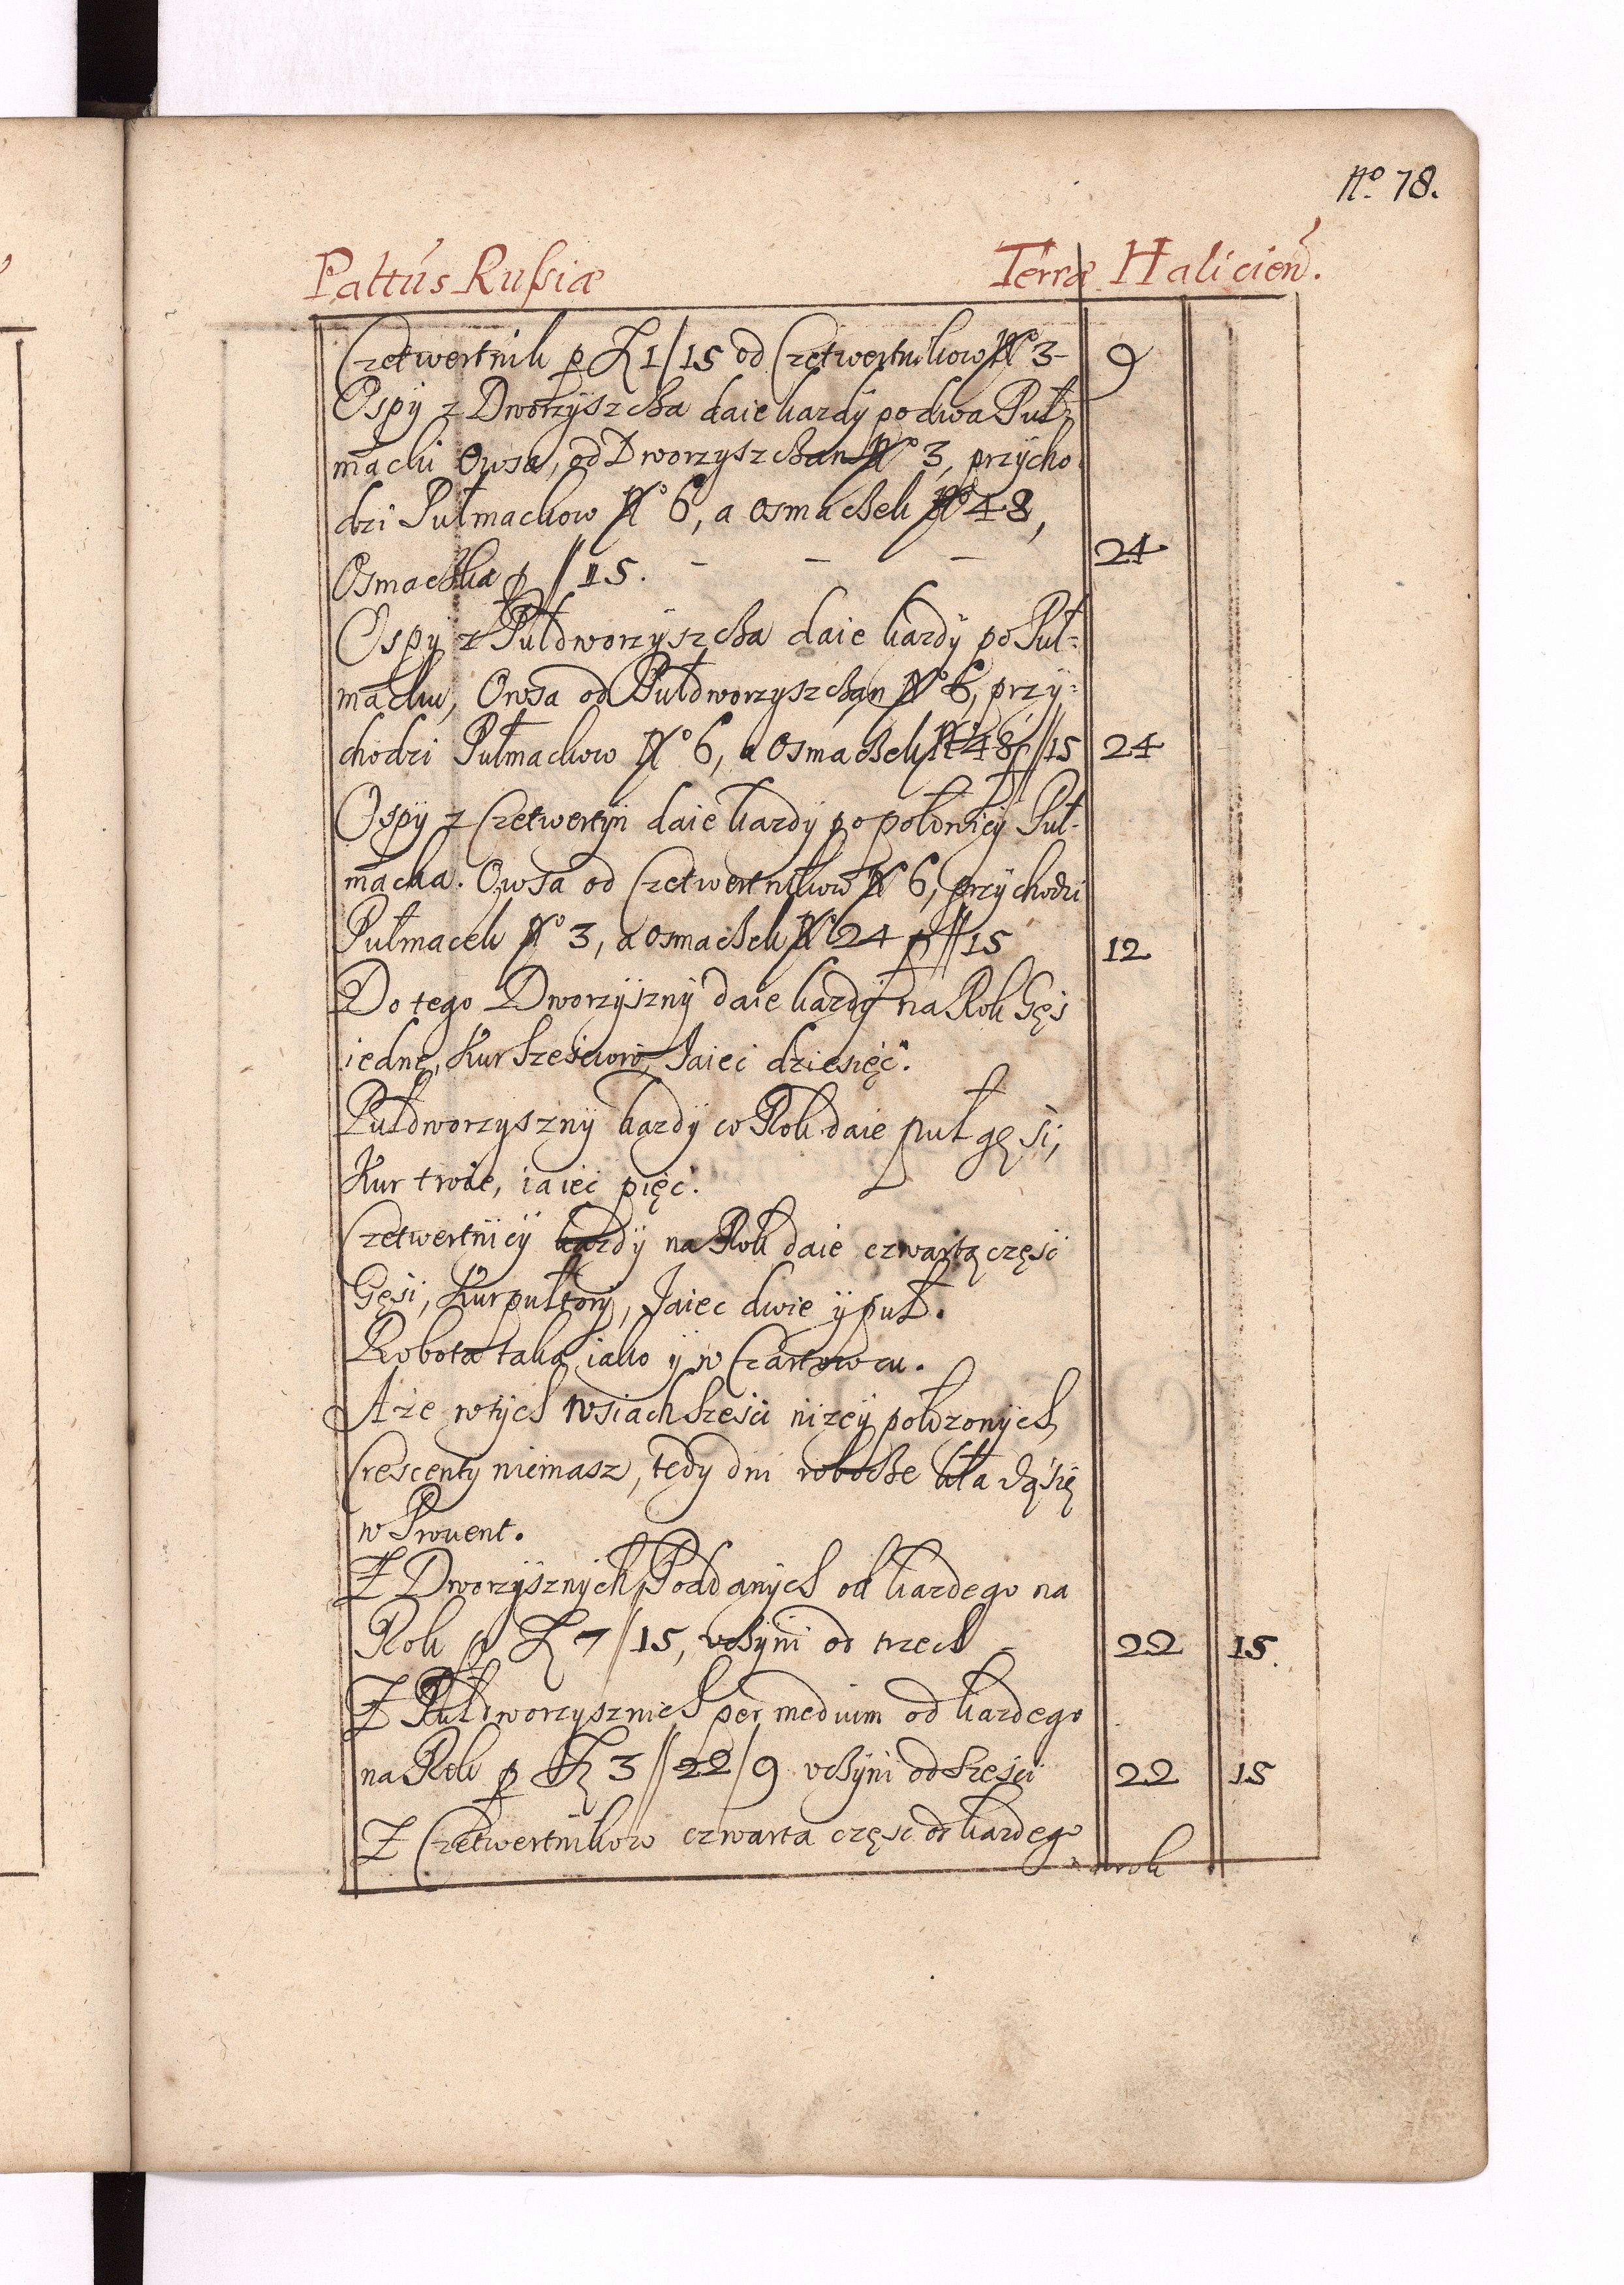 No. 78.
Pattús Rußiæ Terræ Halicien.
Czetwertnik p Zł 1/15 od Czetwertnikow No 3 - 9
Ospÿ z Dworzÿszcza daie kazdÿ po dwa Puł-
macki Owsa, od Dworzyszczan No 3, przÿcho
dzi Pułmackow No 6, a osmaczek No 48,
Osmaczka p // 15. - - - 24
Ospÿ z Pułdworzÿszcza daie kazdÿ po Puł-
macku, Owsa od Pułdworzyszczan No 6, przÿ-
chodzi Pułmackow No 6, a osmaczek No 48 p // 15 24
Ospÿ z Czetwertÿni daie kazdÿ po połowicÿ Puł-
macka. Owsa od Czetwertnikow No 6, przÿchodzi
Pułmacek No 3, a osmaczek No 24 p // 15 12
Do tego Dworzÿsznÿ daie kazdÿ na Rok Gęś
iednę, Kur sześcioro, Jaiec dziesięć.
Pułdworzyszny kazdÿ co Rok daie puł gęsi,
Kur troie, iaiec pięć.
Czetwertnicÿ kazdÿ na Rok daie czwartą część
Gęsi, Kur pułtorÿ, Jaiec dwie ÿ puł.
Robota taka iako ÿ w Czartowcu.
A ze w tych wsiach sześci nizeÿ połozonÿch
Crescenty niemasz, tedy dni robocze kładą się
w Prouent.
Z Dworzÿsznÿch Poddanÿch od kazdego na
Rok p Zł 7/15, vczÿni od trzech - 22 15.
Z Pułdworzysznich per medium od kazdego
na Rok p Zł 3 // 22/9 vczÿni od sześci 22 15
Z Czetwertnikow czwarta część od kazdego
na rok